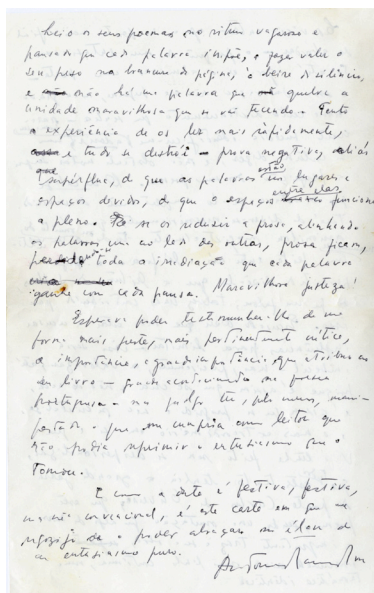 Leio os seus poemas no ritmo vagaroso e
pausado que cada palavra impõe, a fazer valer o
seu peso na brancura da página, à beira do silêncio,
e não há uma palavra que quebra a
unidade maravilhosa que se vai fazendo. Tento
a experiência de os ler mais rapidamente,
e tudo se destrói — prova negativa, aliás
supérflua, de que as palavras estão nos lugares e
espaços devidos, de que o espaço entre elas funciona
a pleno. se os reduzir a prosa, alinhando
as palavras umas ao lado das outras, prosa ficam,
toda a irradiação que cada palavra
ganha com cada pausa. Maravilhosa justeza!
Esperava poder testemunhar-lhe de uma
forma mais perto, mais pertinentemente crítica,
a importância, a grande importância, que atribuo ao
seu livro — na poesia
portuguesa — pelo menos,
com leitor que
não podia reprimir o entusiasmo que o
tomou.
E como a arte é festiva, festiva,
mas não convencional, é esta carta em que se
regozija de o poder abraçar num élan de
um entusiasmo puro.
António Ramos Rosa